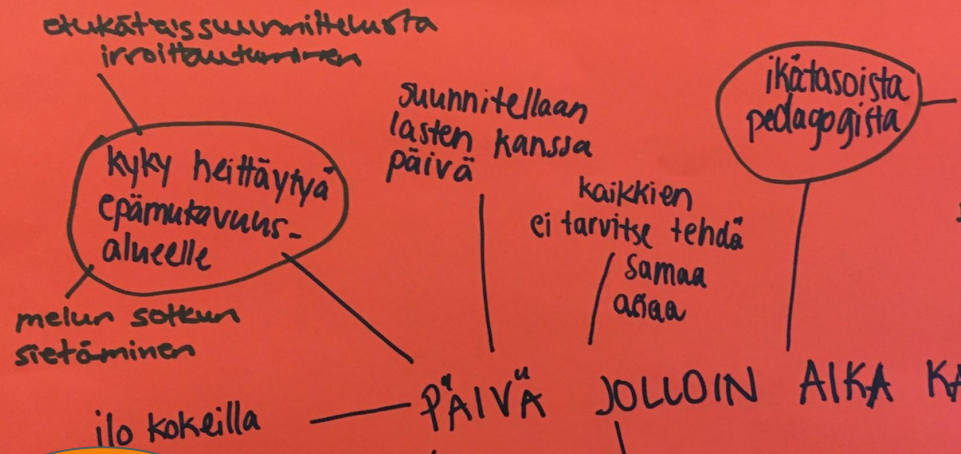 etukäteissuunnittelusta
irroittautuminen
kyky heittäytyä
epämukavuus-
alueelle
melun sotkun
sietäminen
suunnitellaan
lasten kanssa
päivä
kaikkien
ei tarvitse tehdä
samaa
asiaa
ikätasoista
pedagogista
ilo kokeilla
PÄIVÄ JOLLOIN AIKA KA